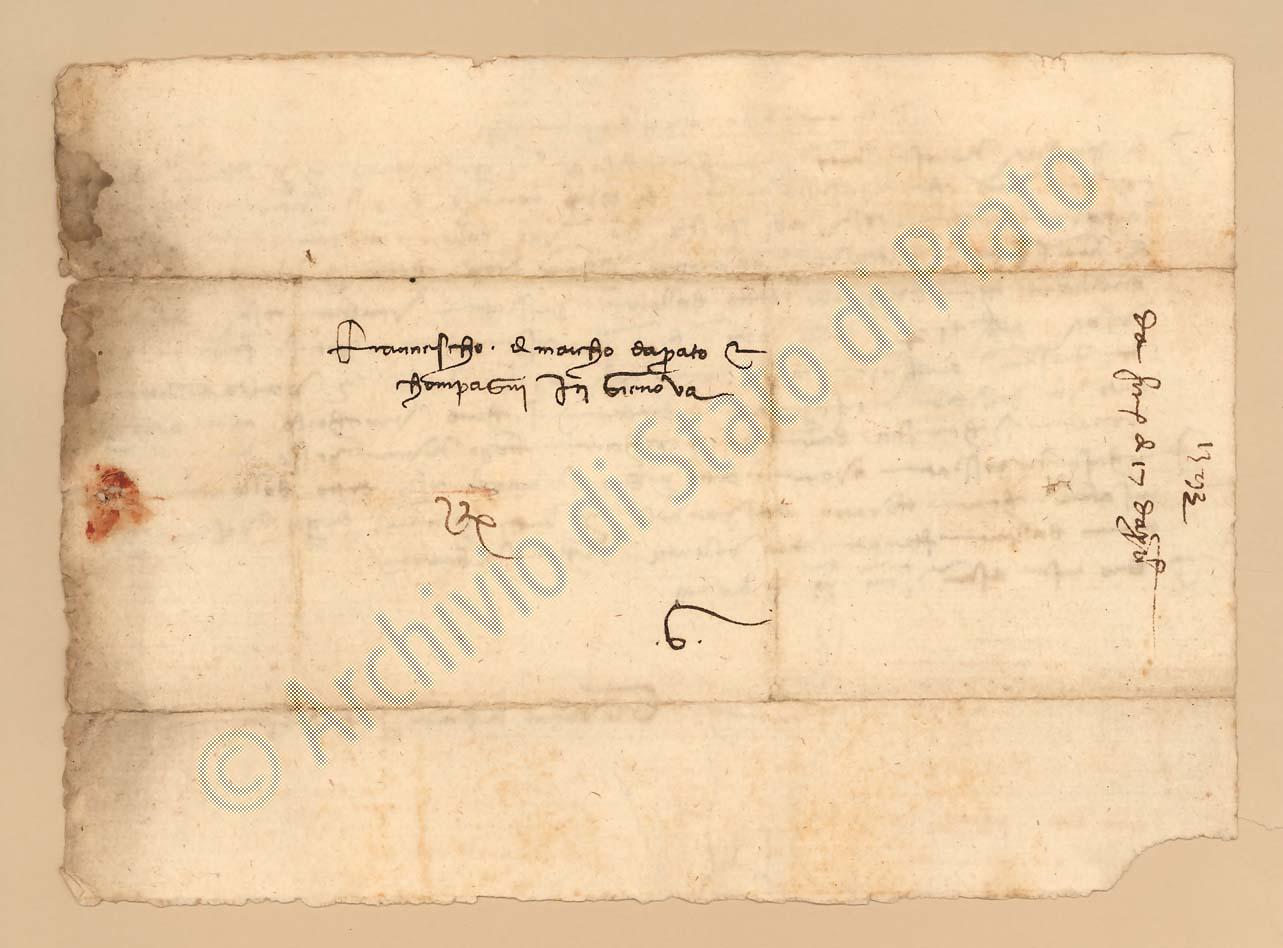 Francischo di marcho daprato e
chompagni In Gienova
da
di 17 daprile
1393
© Archivio di Stato di Prato